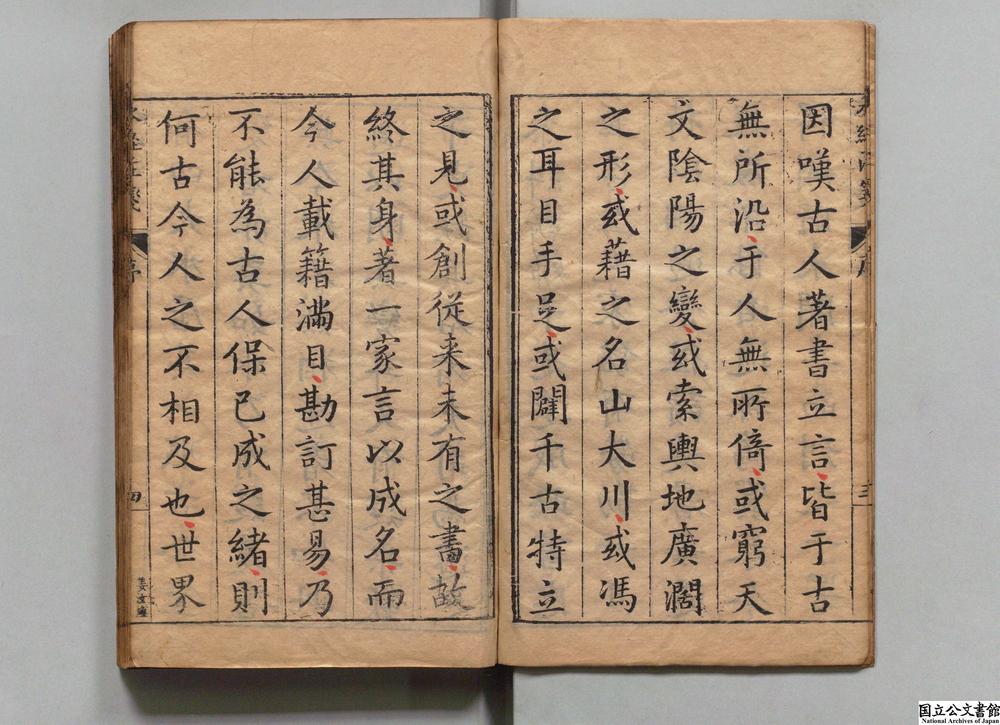 因嘆古人著書立言皆于古
無所沿于人無所倚或窮天
文陰陽之變或索輿地廣濶
之形或藉之名山大川或馮
之耳目手足或闢千古特立
之見或創從来未有之書故
終其身著一家言以成名而
今人載籍滿目勘訂甚易乃
不能為古人保已成之緒則
何古今人之不相及也世界
序
四
国立公文書館
National Archives of Japan